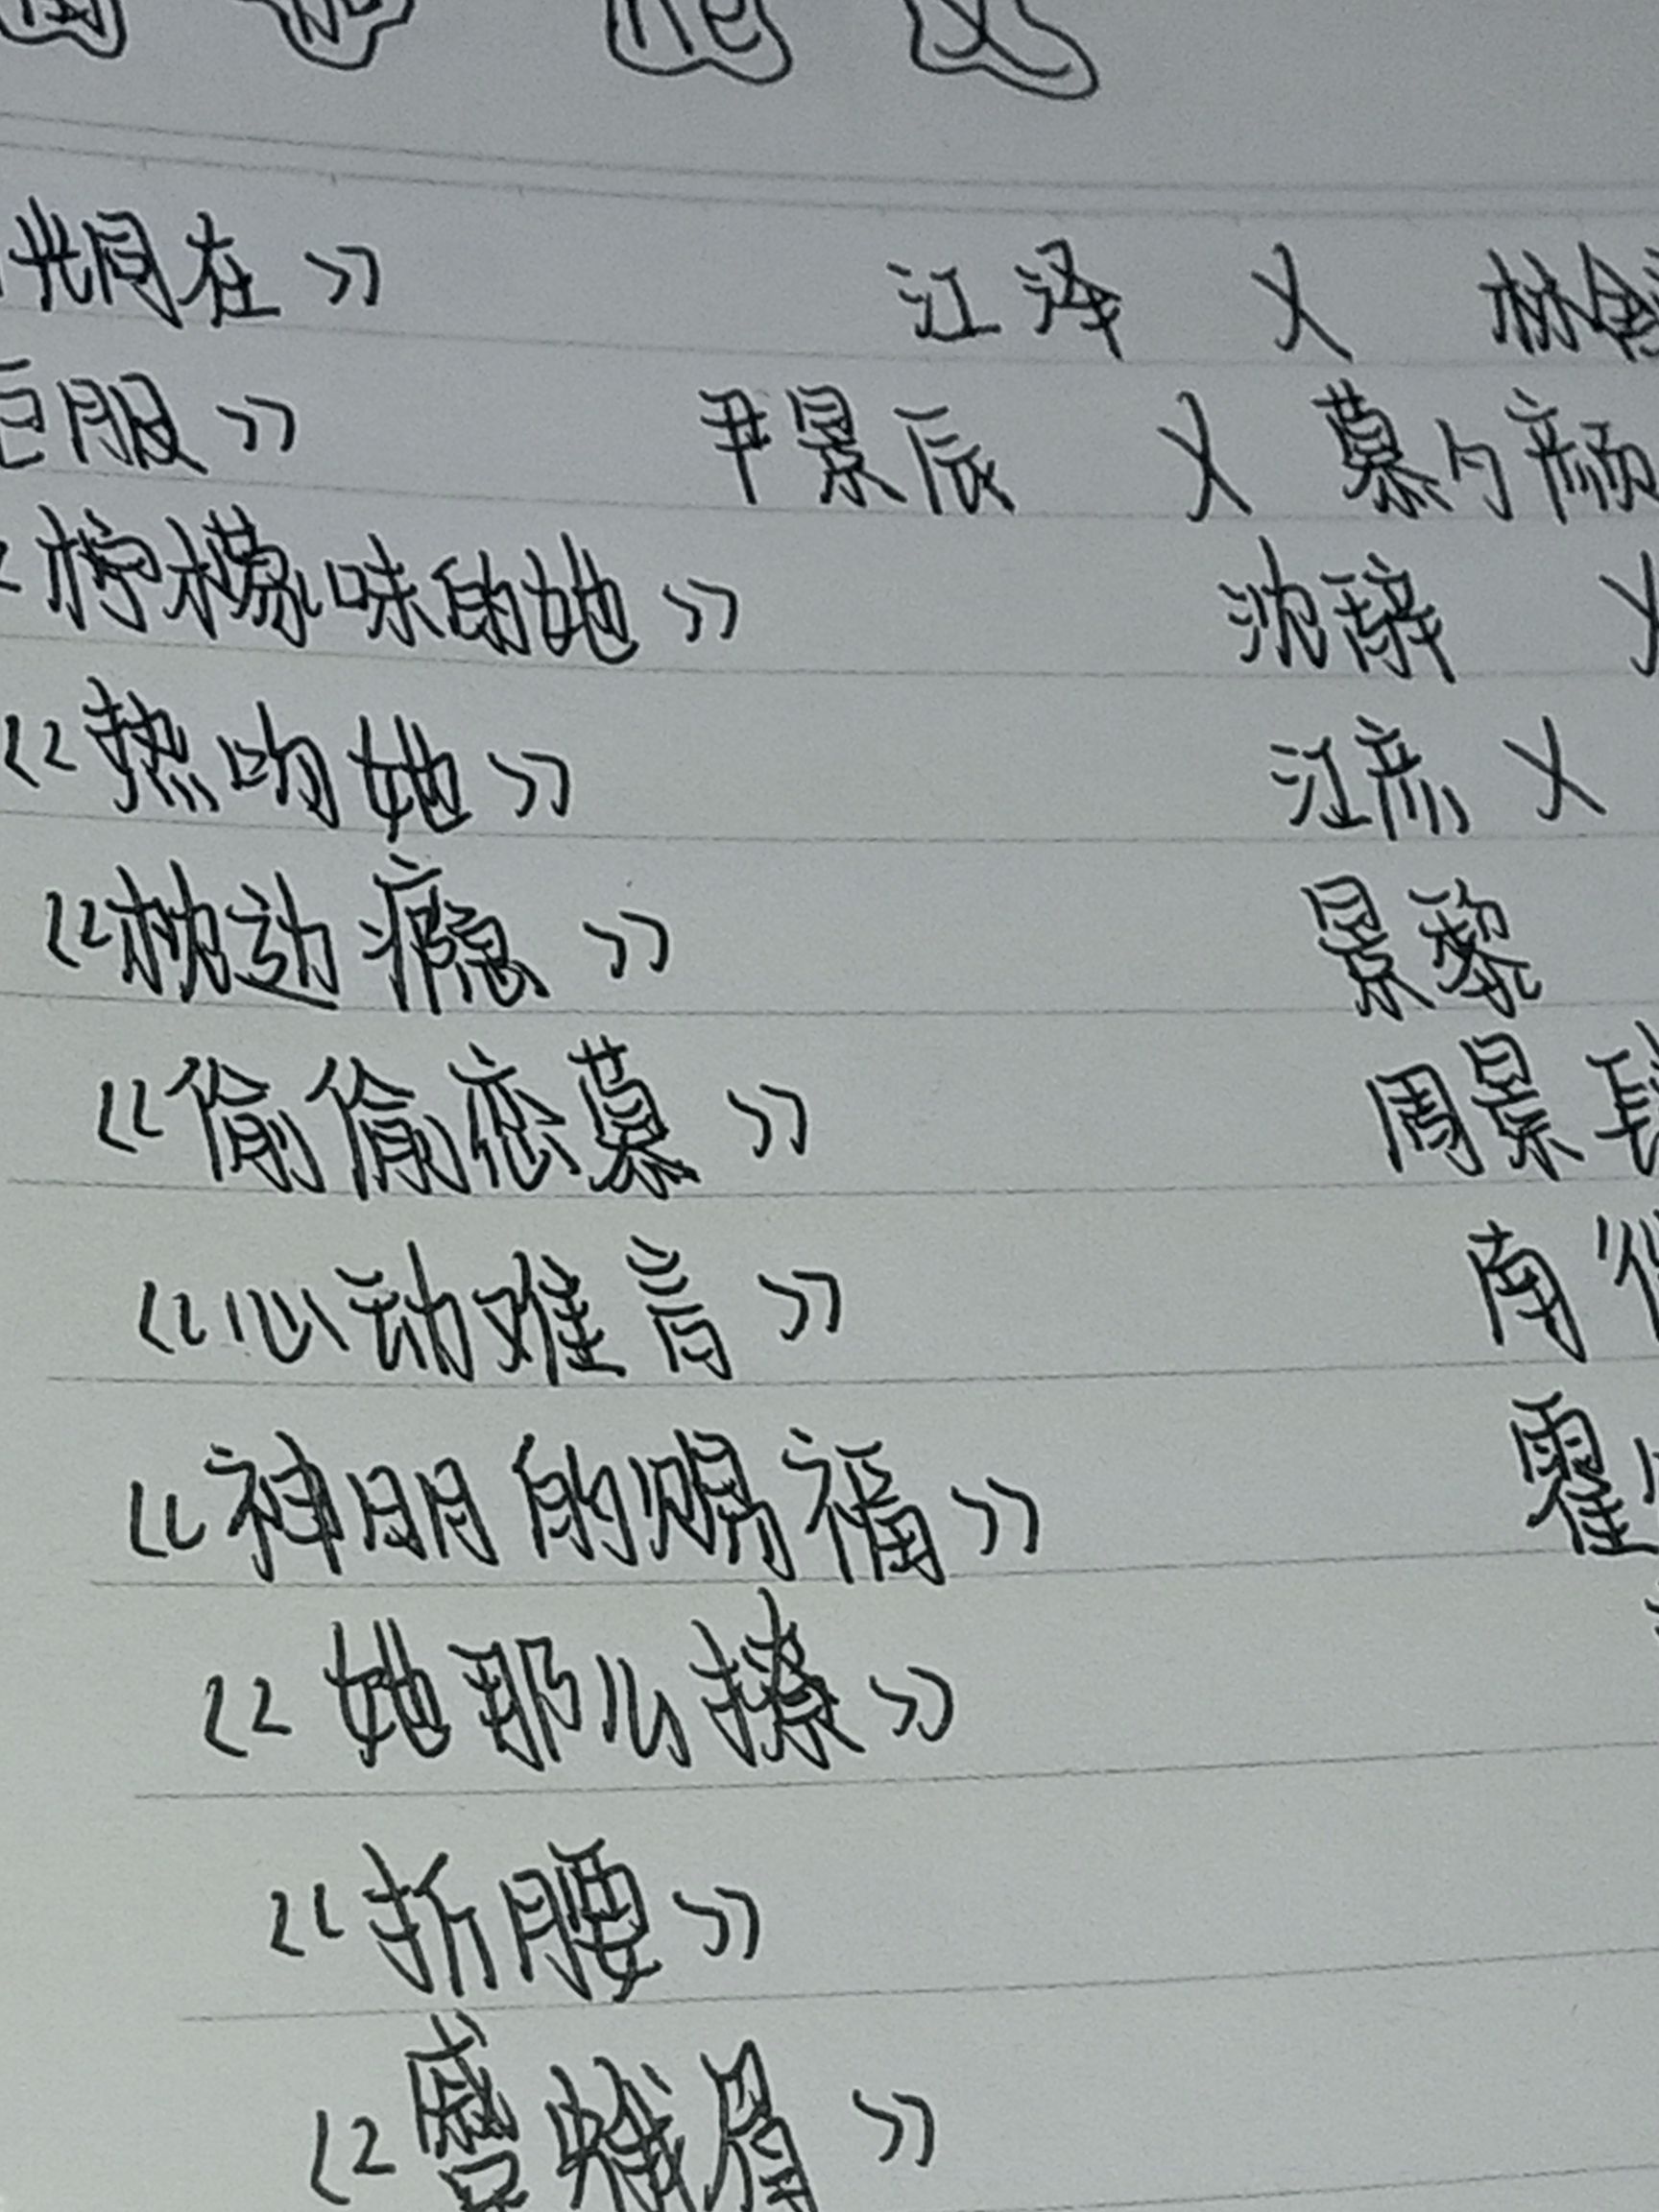 光同在》 江泽 X 林
臣服》 尹景辰 X 慕夕颜
柠檬味的她》 沈辞 X
《热吻她》 江焘 X
《枕边瘾》 景黎
《偷偷恋慕》 周景
《心动难言》 南
《神明的赐福》 霍
《她那么撩》
《折腰》
《蹙蛾眉》